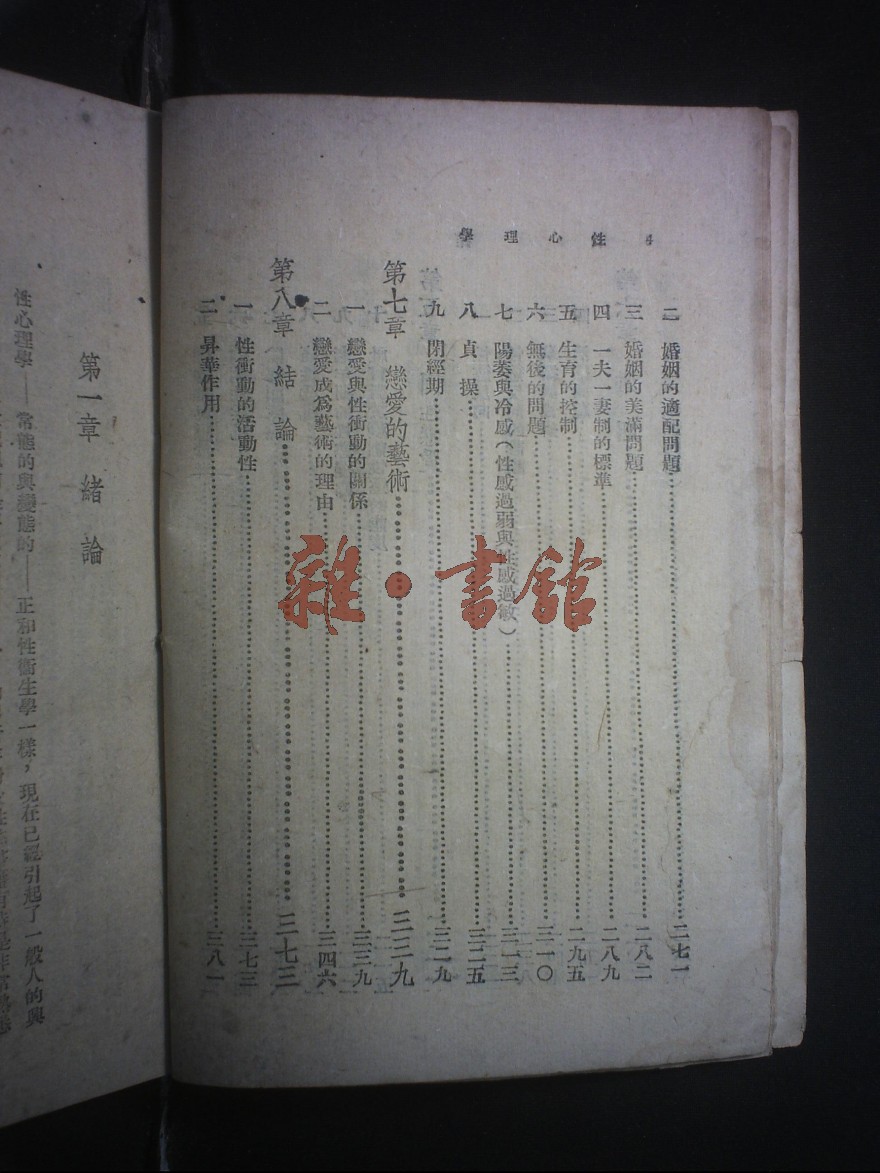 性心理學
二 婚姻的適配問題……二七一
三 婚姻的美滿問題……二八二
四 一夫一妻制的標準……二八九
五 生育的控制……二九五
六 無後的問題……三一〇
七 陽萎與冷感(性感過弱與性感過敏)……三一三
八 貞 操……三二五
九 閉經期……三二九
第七章 戀愛的藝術……三三九
一 戀愛與性衝動的關係……三三九
二 戀愛成爲藝術的理由……三四六
第八章 結 論……三七三
一 性衝動的活動性……三七三
二 昇華作用……三八一
雜·書館
第一章 緒 論
性心理學——常態的與變態的——正和性衞生學一樣,現在已經引起了一般人的興